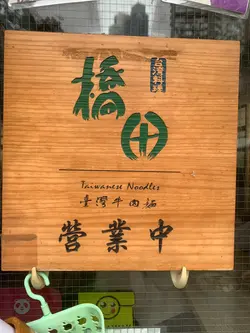 橋田
Taiwanese Noodles
臺灣牛肉麵
營業中